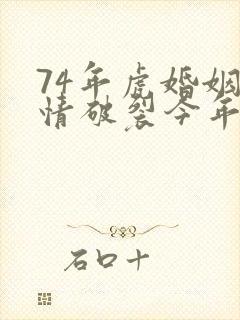 74年虎婚姻
情破裂今年
石口十